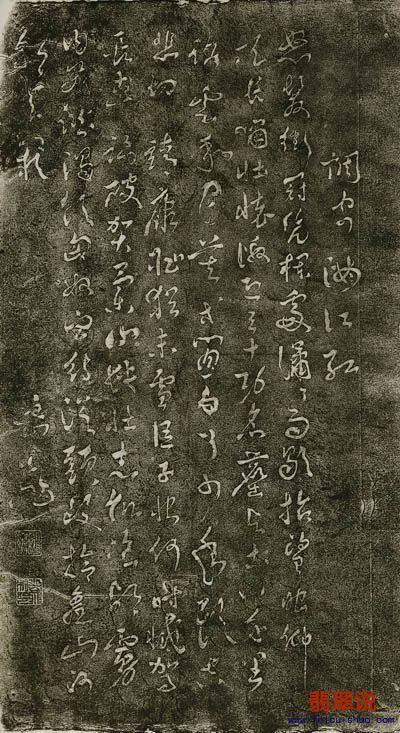 調寄滿江紅
怒髮衝冠凭欄處瀟〻雨歇抬望眼仰
天長嘯壯懷激烈三十功名塵与土八千里
路雲和月莫等閒白了少年頭空
悲切靖康恥猶未雪臣子恨何時滅駕
長車踏破賀蘭山缺壯志飢餐胡虜
肉笑談渴飲匈奴血待從頭收拾舊山河
朝天闕
翡翠说
www.feicui-shuo.com